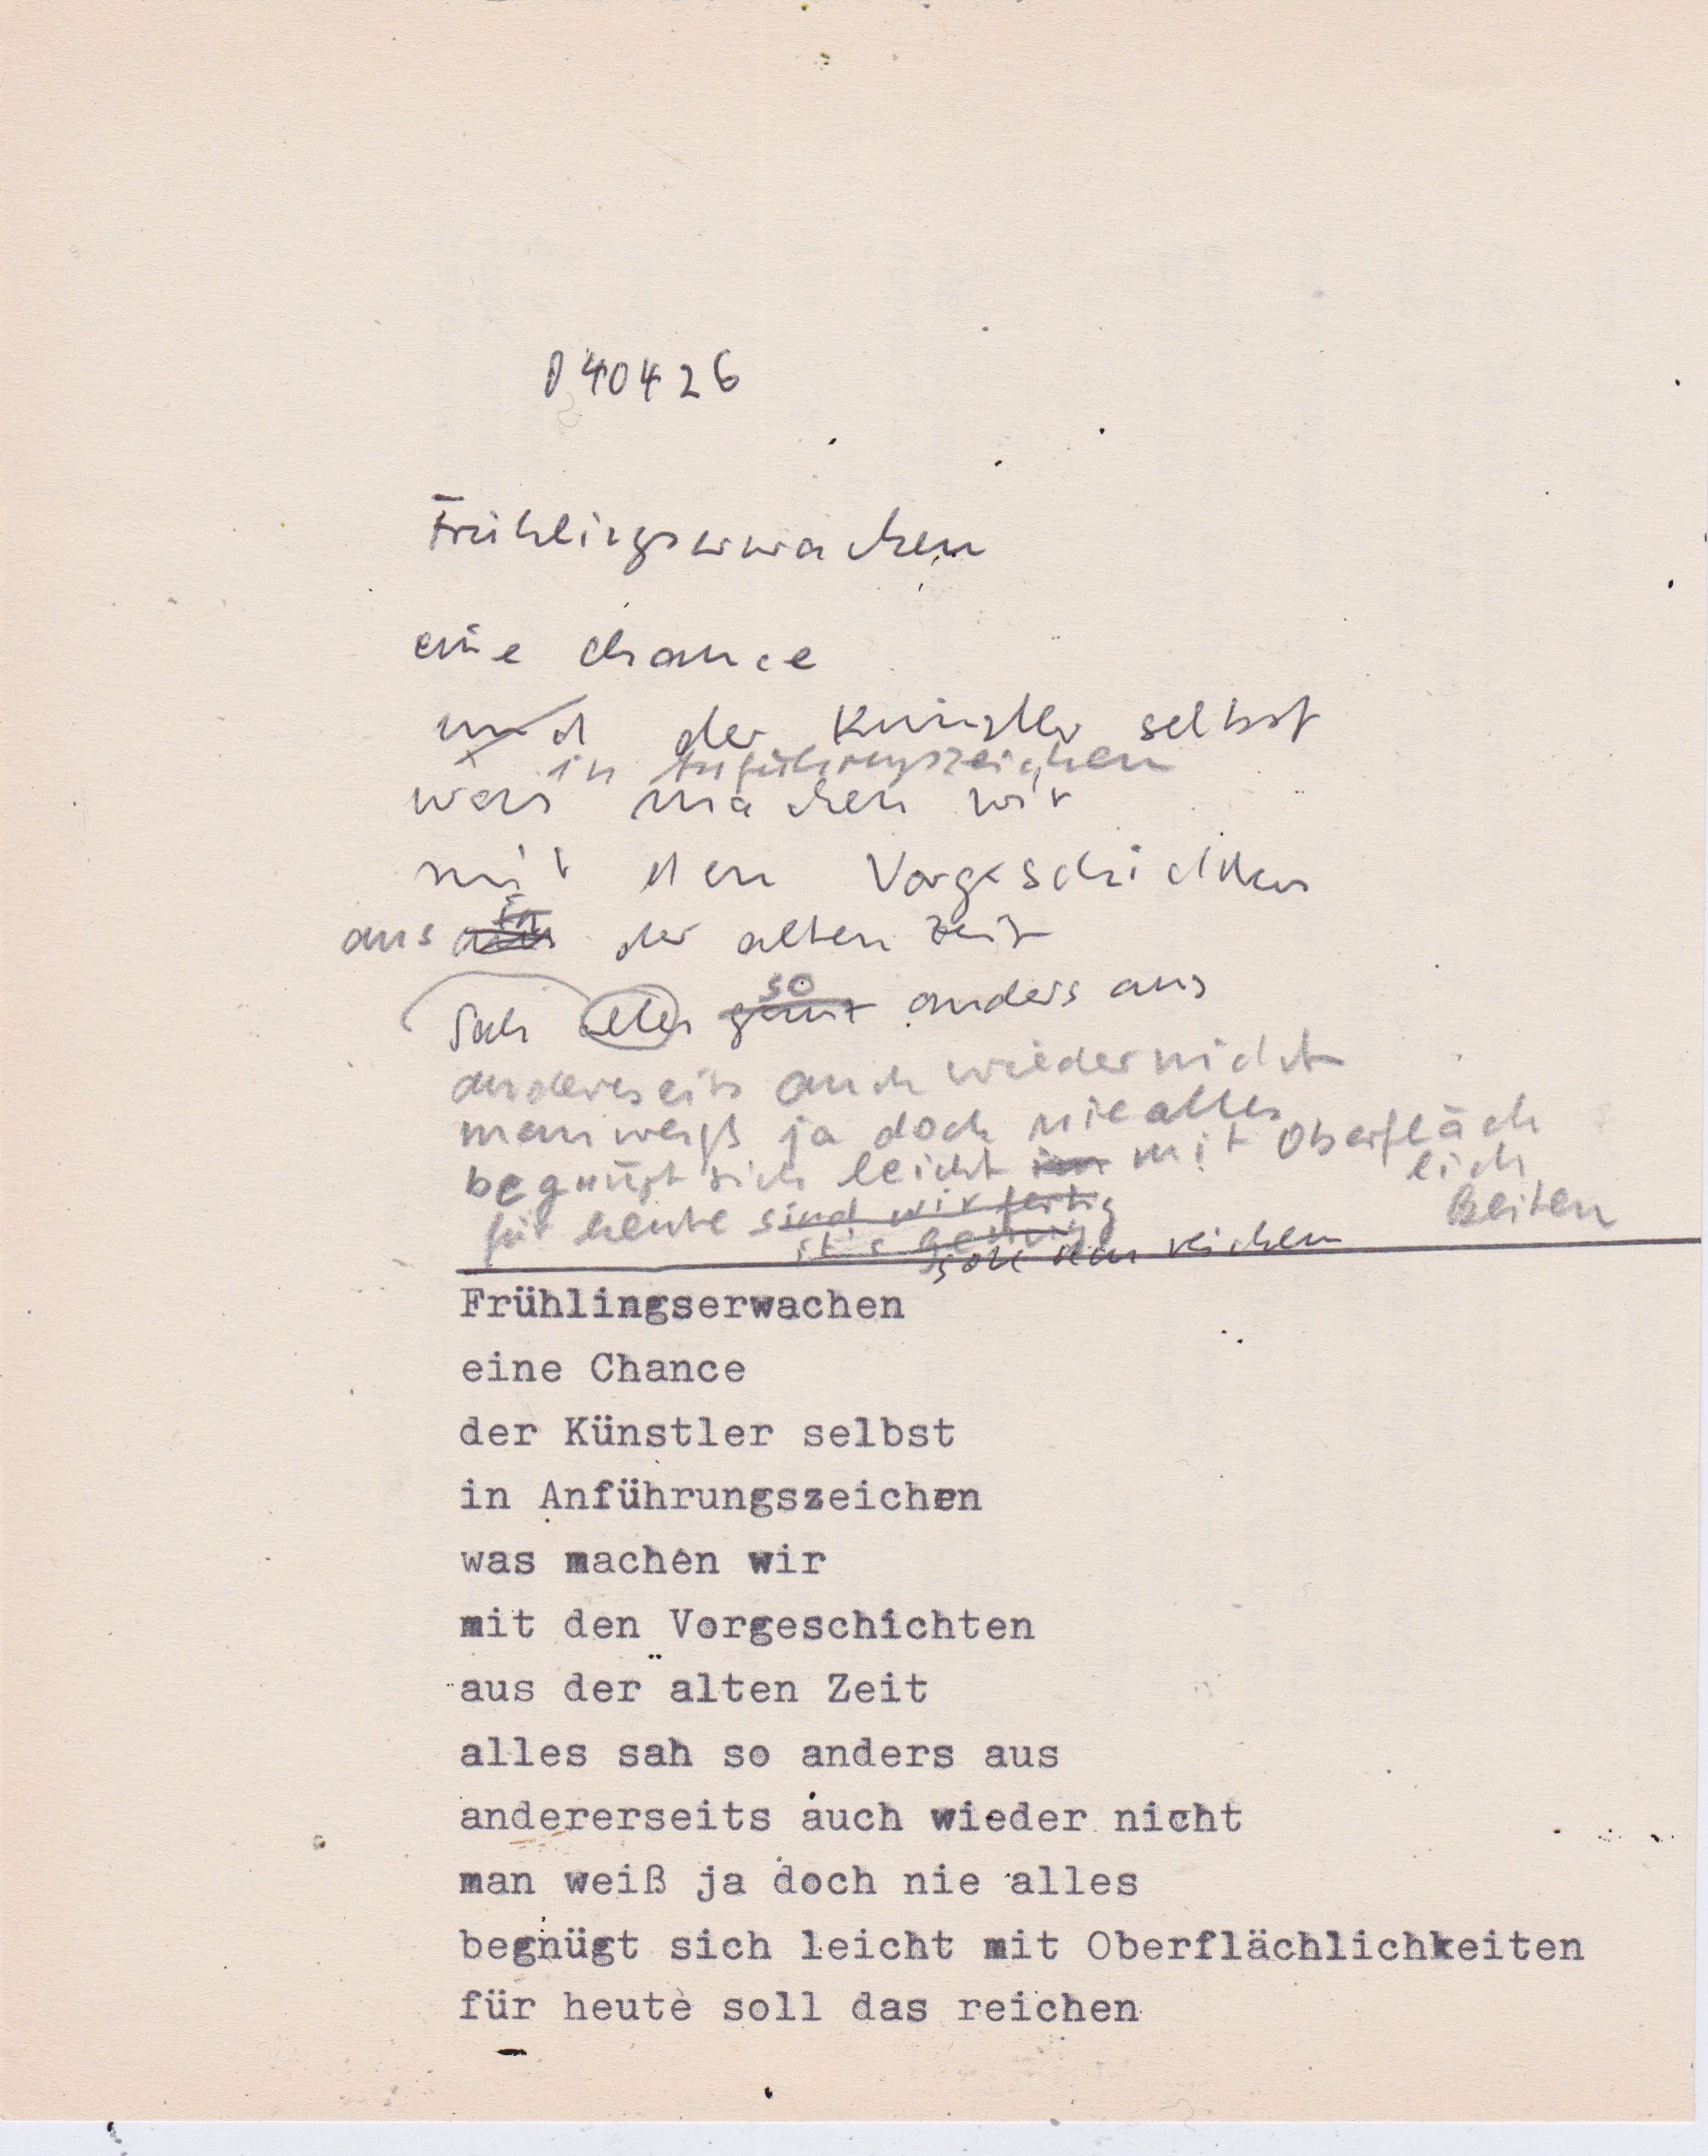 040426
Frühlingserwachen
eine Chance
und der Künstler selbst
in Anführungszeichen
was machen wir
mit den Vorgeschichten
in
aus der alten Zeit
so
sah alles ganz anders aus
andererseits auch wieder nicht
man weiß ja doch nie alles
begnügt sich leicht mit Oberfläch
lich
keiten
für heute sind wir fertig
ist's genug
soll das reichen
Frühlingserwachen
eine Chance
der Künstler selbst
in Anführungszeichen
was machen wir
mit den Vorgeschichten
aus der alten Zeit
alles sah so anders aus
andererseits auch wieder nicht
man weiß ja doch nie alles
begnügt sich leicht mit Oberflächlichkeiten
für heute soll das reichen